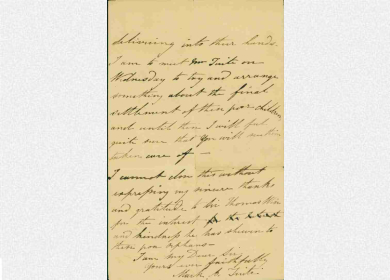 delivering into their hands.
I am to meet Mr Tuite on
Wednesday to try and arrange
something about the final
settlement of these poor children
and until then I will feel
quite sure that you will
taken care of —
I cannot close this without
expressing my sincere thanks
and gratitude to Sir Thomas
for the interest he has
and kindness he has shewn to
these poor orphans
I am My Dear Sir
yours ever faithfully
Mark A. Tuite